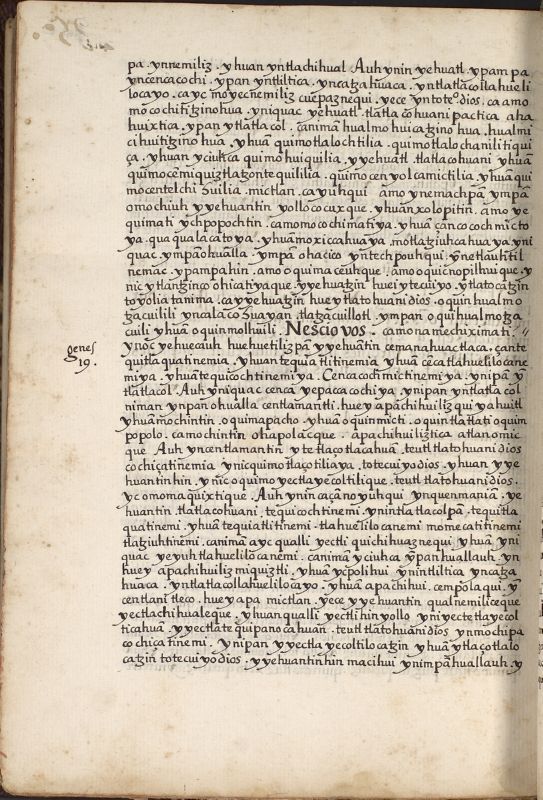 pa. ynnemiliz. yhuan yntlachihual Auh ynin yehuatl ypampa
yncenca cochi. ypan yntliltica. yncatzahuaca. yntlatlacollahueli
locayo. ca yc moyecnemiliz cuepaznequi. yece yn toteº. dios. ca amo
mocochititzinohua. yniquac yehuatl. tlatlacohuani pactica aha
huixtica. ypan ytlatlacol. ca niman hualmohuicatzinohua. hualmi
cihuitzinohua. yhuā quimotlalochtilia. quimotlalochanilitiqui
ça. yhuan yciuhca quimohuiquilia. yyehuātl. tlatlacohuani yhuā
quimocemiquiztlatzontequililia. quimocenyolcamictilia. yhuā qui
mocentelchihuilia. mictlan. ca yuhqui amo ynemachpā ympā
omochiuh yyehuantin yollococuxque. yhuan xolopitin. amo ye
quimati ychpopochtin. ca momocochimatiya. yhuā çan cocochmicto
ya. quaqualacatoya. yhuā moxicahuaya. motlatziuhcahuaya yni
quac ympā ohualla. ympā ohacico yntechpouhqui. ynetlauhtil
nemac. ypampa hin. amo oquimaceuhque. amo oquicnopilhuique. y
nic ytlantzinco ohicatiaque. yyehuatzin huei ytecuiyo. ytlatocatzin
toyolia tanima. ca yyehuatzin huey tlatohuani dios. oquinhualmo
tzacuilili yncalacohuayan. tlatzacuillotl. ympan oquihualmotza
cuili yhuā oquinmolhuili. Nescio vos. ca mo namechiximati.
ynoc yehuecauh huehuetilizpā yyehuātin cemanahuac tlaca. çan te
quitlaquatinemia. yhuan tequatlitinemia. yhuā cēca tlahuelilocane
miya. yhuā tequicochtinemiya. Cenca cochmictinemiya. ynipan y
tlatlacol. Auh yniquac cenca yepaccacochiya. ynipan yntlatlacol
niman ynpan ohualla centlamantli. huey apachihuiliz qui yahuitl
yhuā mochintin. oquimapacho. yhuā oquinmicti. oquintlatlati oquim
popolo. ca mochintin ohapolacque. apachihuiliztica atlan omic
que. Auh yn centlamantin yte tlaçotlacahuā. teutl tlatohuani dios
cochiçatinemia ynic quimotlaçotiliaya. totecuiyo dios. yhuan yye
huantin hin. ynic oquimo yectlayecoltilique. teutl tlatohuani dios.
yc omomaquixtique. Auh ynin ca çano yuhqui ynquenmaniā. ye
huantin tlatlacohuani. tequicochtinemi. ynintlatlacolpā. tequitla
quatinemi. yhuā tequiatlitinemi. tlahuelilocanemi momecatitinemi
tlatziuhtinemi. ca niman ayc qualli yectli quichihuaznequi yhuā yni
quac yeyuh tlahuelilocanemi. ca niman yciuhca ynpan huallauh. yn
huey apachihuiliz miquiztli. yhuā ycpolihui ynintliltica yncatza
huaca. yntlatlacollahuelilocayo. yhuā apachihui. cempolaqui. yn
centlani tleco. huey apa mictlan. yece yyehuantin qualnemiliceque
yectlachihualeque. yhuan qualli yectli hin yollo yniyectetlayecol
ticahuā. yyectlatequipanocahuan. teutl tlatohuani dios ynmochipa
cochiçatinemi. ynipan yyectlayecoltilocatzin yhuā ytlaçotlalo
catzin totecuiyo dios. yyehuantin hin macihui ynimpā huallauh. y
genes
19.